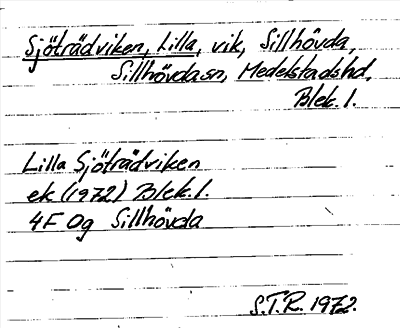 Sjöträdviken, Lilla, vik, Sillhövda,
Sillhövda sn, Medelstads hd,
Blek. l.
Lilla Sjöträdviken
ek (1972) Blek. l.
4F 0g Sillhövda
S.T.R. 1972.